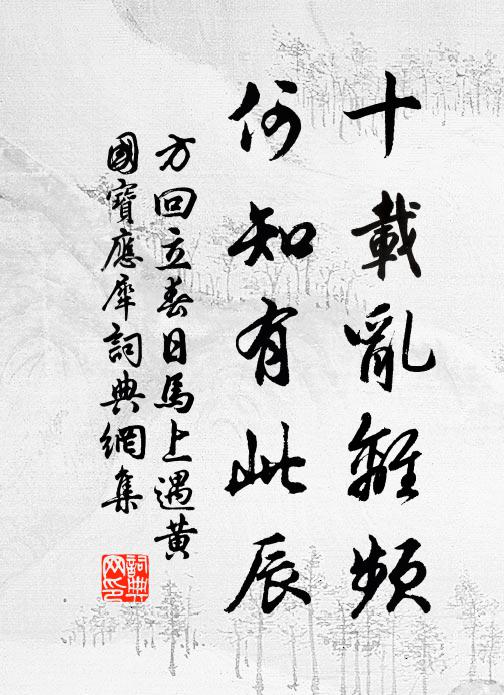 十載亂離頻
何知有此辰
方回立春日馬上遇黃
國寶應犀詞典網集
詞典網印